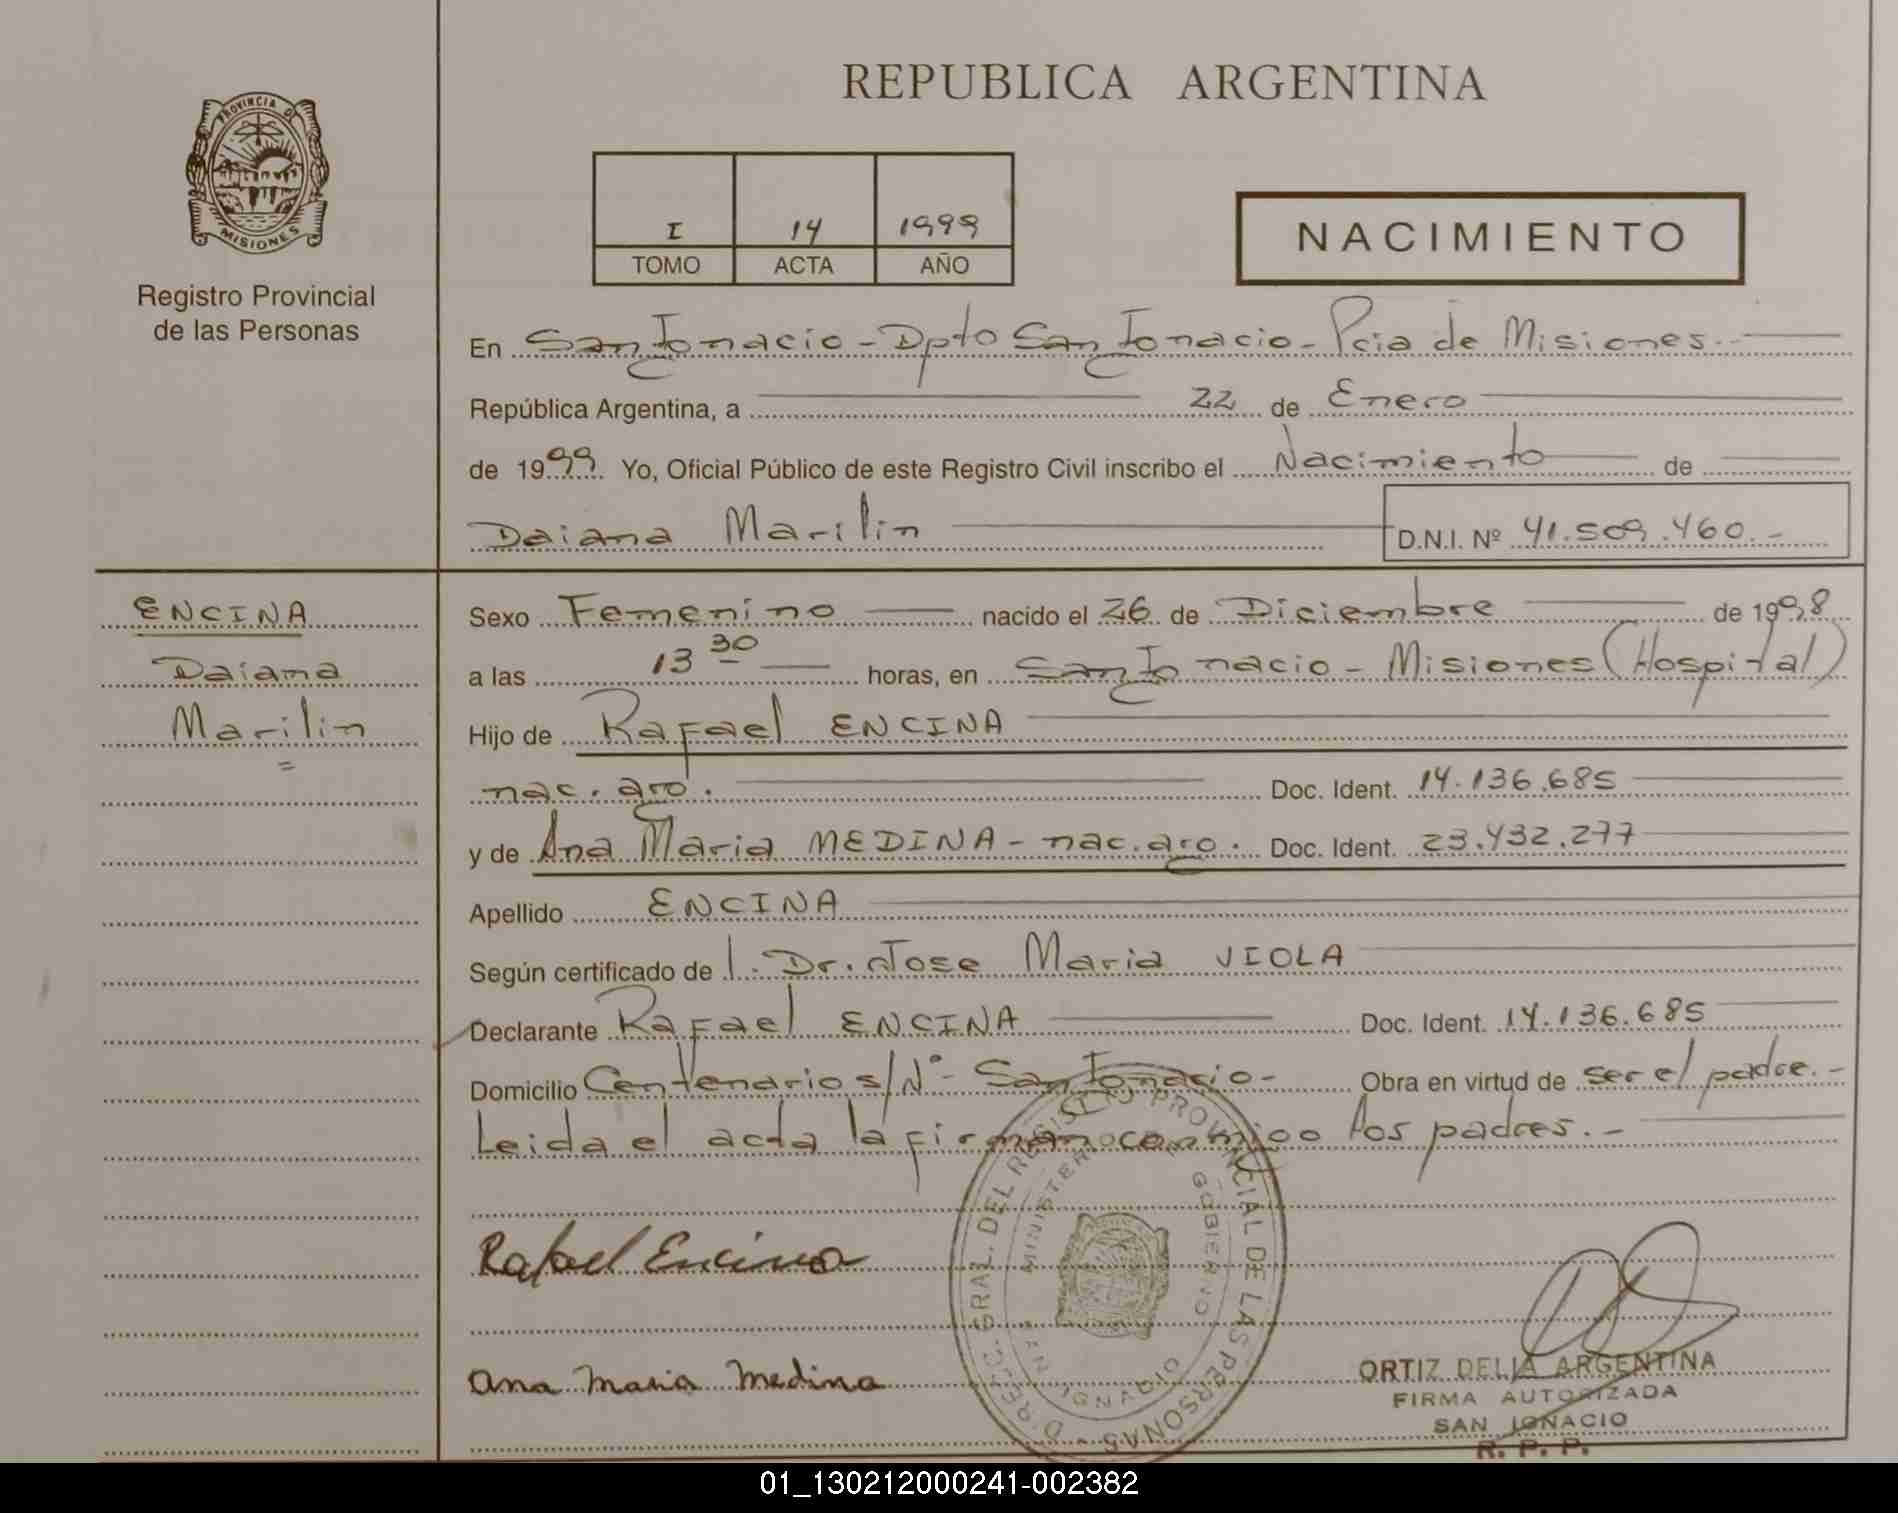 REPUBLICA ARGENTINA
PROVINCIA DE
MISIONES
Registro Provincial
de las Personas
I 14 1999
TOMO ACTA AÑO
NACIMIENTO
En San Ignacio - Dpto San Ignacio - Pcia de Misiones.-
República Argentina, a 22 de Enero
de 1999 Yo, Oficial Público de este Registro Civil inscribo el Nacimiento de
Daiana Marilin D.N.I. Nº 41.509.460.-
ENCINA
Daiana
Marilin
Sexo Femenino nacido el 26 de Diciembre de 1998
a las 13 30 horas, en San Ignacio - Misiones (Hospital)
Hijo de Rafael ENCINA
nac. arg. Doc. Ident. 14.136.685
y de Ana Maria MEDINA - nac. arg. Doc. Ident. 23.432.277
Apellido ENCINA
Según certificado de l. Dr. Jose Maria VIOLA
Declarante Rafael ENCINA Doc. Ident. 14.136.685
Domicilio Centenario s/Nº - San Ignacio - Obra en virtud de ser el padre.-
Leida el acta la firman conmigo los padres.-
Rafael Encina
Ana Maria Medina
DIREC. GRAL. DEL REGISTRO PROVINCIAL DE LAS PERSONAS -
MINISTERIO GOBIERNO
SAN IGNACIO
ORTIZ DELIA ARGENTINA
FIRMA AUTORIZADA
SAN IGNACIO
R. P. P.
01_130212000241-002382